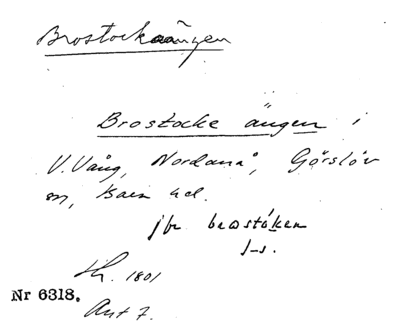 Brostockaängen
Brostocke ängen i
V. Vång, Nordanå, Görslöv
sn, Bara hd.
jfr brostoken
f-s.
Th. 1801
Nr 6318.
Akt 7.